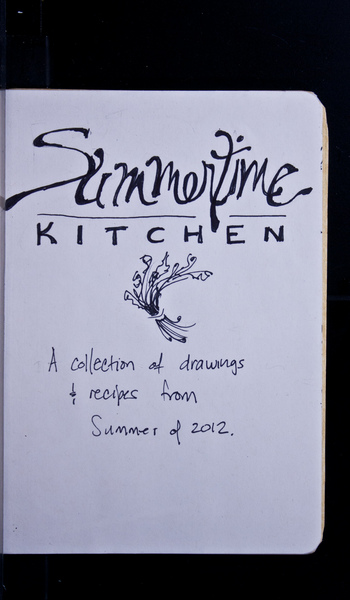 Summertime
KITCHEN
A collection of drawings
& recipes from
Summer of 2012.